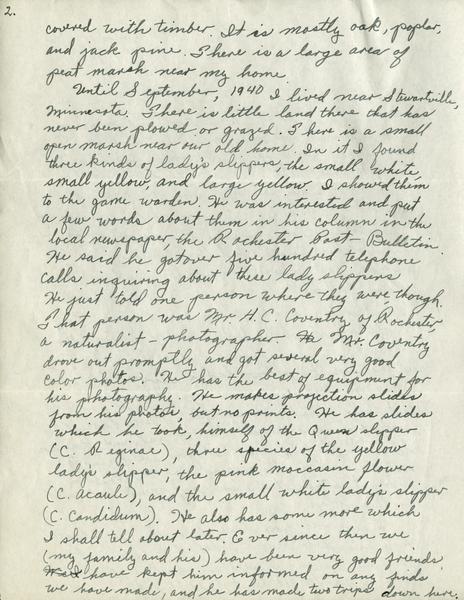 2.
covered with timber. It is mostly oak, poplar,
and jack pine. There is a large area of
peat marsh near my home.
Until September, 1940 I lived near Stewartville,
Minnesota. There is little land there that has
never been plowed or grazed. There is a small
open marsh near our old home. In it I found
three kinds of lady's slippers, the small white,
small yellow, and large yellow. I showed them
to the game warden. He was interested and put
a few words about them in his column in the
local newspaper, the Rochester Post-Bulletin.
He said he got over five hundred telephone
calls inquiring about these lady slippers
He just told one person where they were, though.
That person was Mr. H. C. Coventry of Rochester,
a naturalist-photographer. Mr. Coventry
drove out promptly and got several very good
color photos. He has the best of equipment for
his photography. He makes projection slides
from his photos, but no prints. He has slides
which he took, himself of the Queen slipper
(C. Reginae), three species of the yellow
lady's slipper, the pink moccasin flower
(C. Acaule), and the small white lady's slipper
(C. Candidum). He also has some more which
I shall tell about later. Ever since then we
(my family and his) have been very good friends.
have kept him informed on any finds
we have made, and he has made two trips down here.